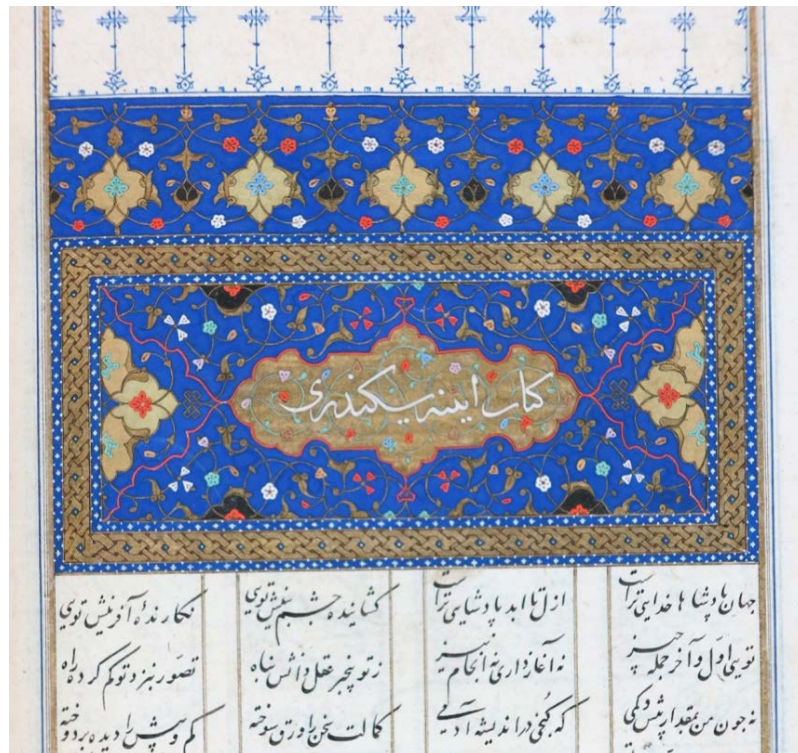 کتاب ایینه سکندری
جهان پادشاها خدایی تراست ازل تا ابد پادشایی تراست کشاینده چشم بینش تویی نکارندهٔ آفرینش تویی
تویی اول و آخر جمله چیز نه آغاز داری نه انجام نیز ز تو بیخبر عقل دانش پناه تصور بنزد تو کم کرده راه
نه چون من بمقدار بینش کمی که کنجی در اندیشه آدمی کمالت سخن را ورق سوخته کم و بیش را دیده بردوخته